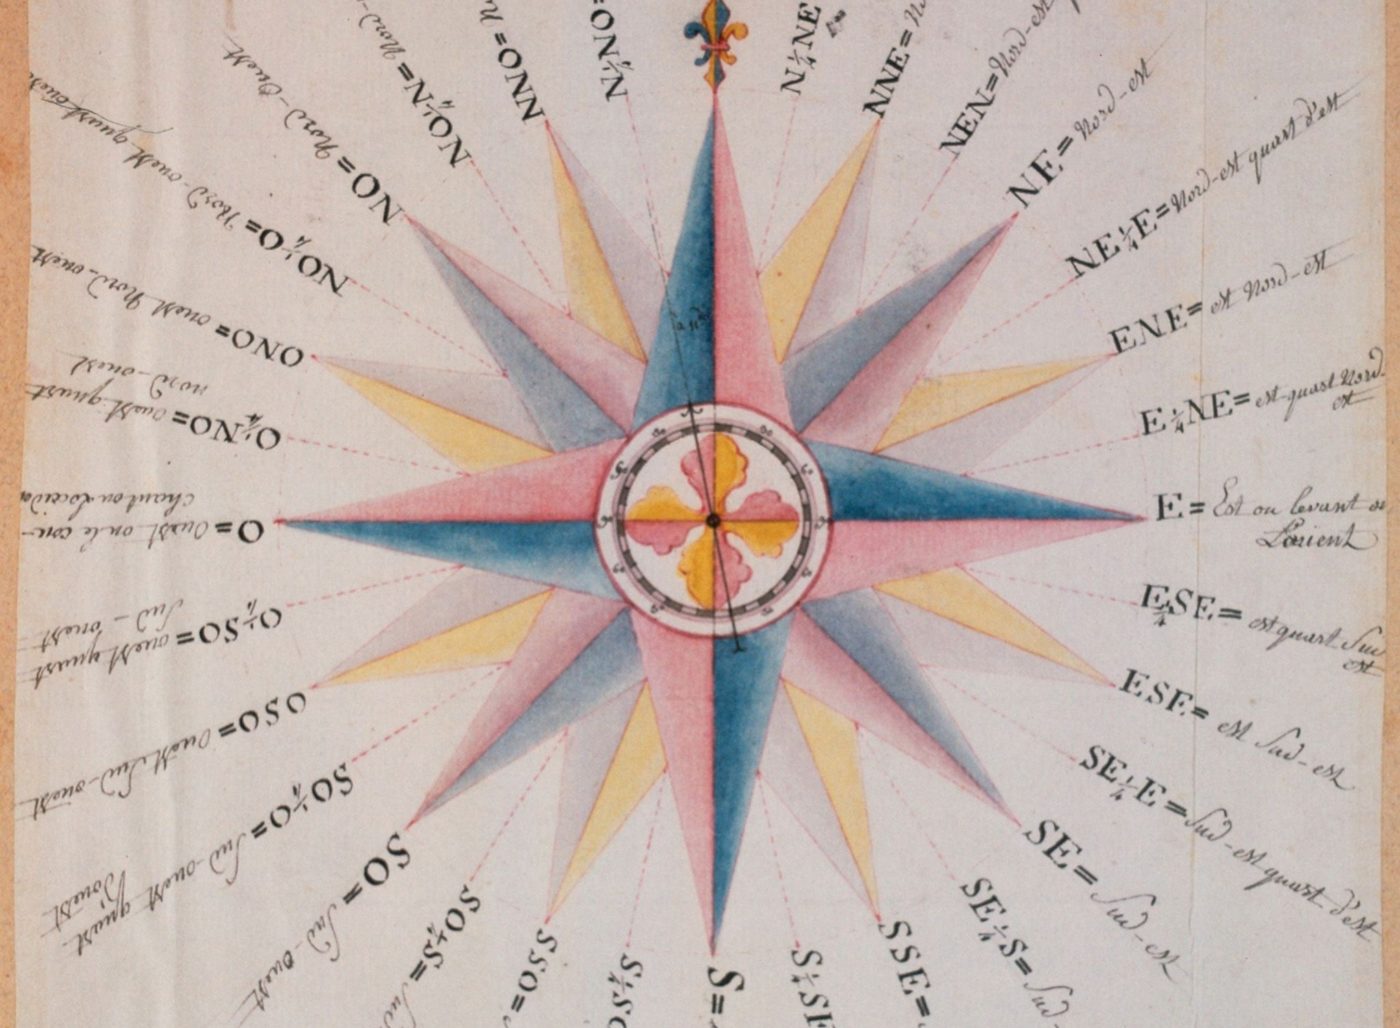 N¼NE
NNE=
NEN= Nord-est
NE= Nord-est
NE¼E= Nord-est quart d'est
ENE= est Nord-est
E¼NE= est quart Nord
est
E= Est ou levant ou
L'orient
E¼SE= est quart Sud
est
ESE= est Sud-est
SE¼E= Sud-est quart d'est
SE= Sud-est
SE¼S= Sud-
SSE=
S¼SE
S=
S¼SO
SSO=
SO¼S= Sud
SO= Sud-ouest
SO¼O= Sud-ouest quart
d'ouest
OSO= Ouest Sud-ouest
O¼SO= ouest quart
Sud-ouest
O= Ouest ou le cou-
chant ou L'occide
O¼NO= ouest quart
nord-ouest
ONO= ouest Nord-ouest
NO¼O= Nord-ouest quart ouest
NO= Nord-Ouest
NO¼N= Nord-
NNO= N
N¼NO=